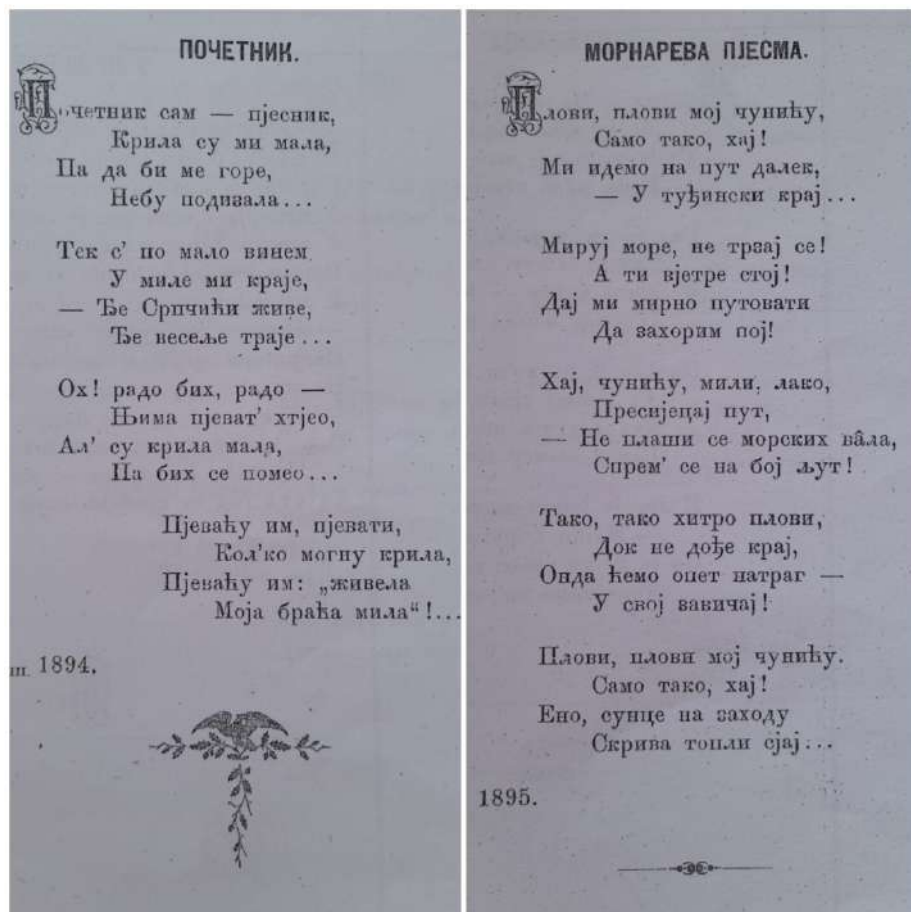 ПОЧЕТНИК.
Почетник сам — пјесник,
Крила су ми мала,
Па да би ме горе,
Небу подизала...
Тек с' по мало винем
У миле ми краје,
— Ђе Српчићи живе,
Ђе весеље траје...
Ох! радо бих, радо —
Њима пјеват' хтјео,
Ал' су крила мала,
Па бих се помео...
Пјеваћу им, пјевати,
Кол'ко могну крила,
Пјеваћу им: „живела
Моја браћа мила“!...
ш. 1894.
МОРНАРЕВА ПЈЕСМА.
Плови, плови мој чунићу,
Само тако, хај!
Ми идемо на пут далек,
— У туђински крај...
Мируј море, не трзај се!
А ти вјетре стој!
Дај ми мирно путовати
Да захорим пој!
Хај, чунићу, мили, лако,
Пресијецај пут,
— Не плаши се морских ва̂ла,
Спрем' се на бој љут!
Тако, тако хитро плови,
Док не дође крај,
Онда ћемо опет натраг —
У свој завичај!
Плови, плови мој чунићу.
Само тако, хај!
Ено, сунце на заходу
Скрива топли сјај...
1895.